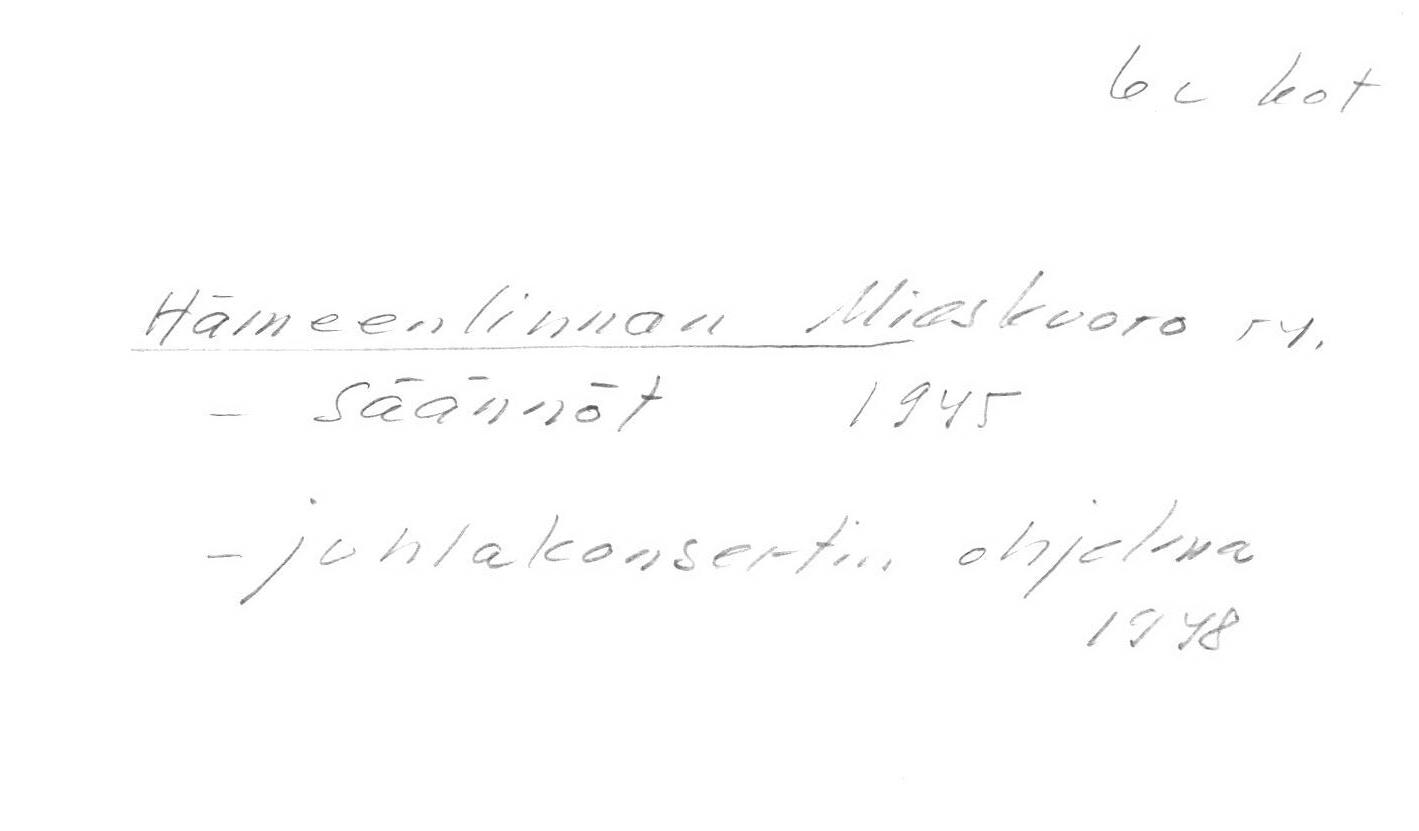 6c kot
Hämeenlinnan Mieskuoro ry.
- säännöt 1945
- juhlakonsertin ohjelma
1948